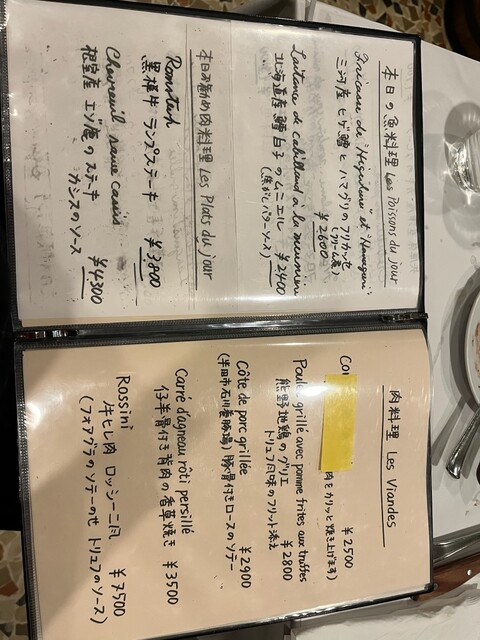 本日の魚料理 Les Poissons du jour
Fricassée de "Higedara" et "Hamaguri"
三河産 ヒゲ鱈とハマグリのフリカッセ
(クリーム煮)
¥2600
Laitance de cabillaud à la meunière
北海道産 鱈白子のムニエル ¥2400
(焦がしバターソース)
本日お勧め肉料理 Les Plats du jour
Romsteck
黒樺牛 ランプステーキ ¥3800
Chevreuil sauce cassis
根室産 エゾ鹿のステーキ
カシスのソース ¥4300
肉料理 Les Viandes
Co
¥2500
肉をカリッと焼き上げます)
Poulet grillé avec pomme frites aux truffes
熊野地鶏のグリエ ¥2800
トリュフ風味のフリット添え
Côte de porc grillée
(半田市石川養豚場) 豚骨付きロースのソテー ¥2900
Carré d'agneau rôti persillé
仔羊骨付き背肉の香草焼き ¥3500
Rossini
牛ヒレ肉 ロッシーニ風 ¥7500
(フォアグラのソテーのせ トリュフのソース)